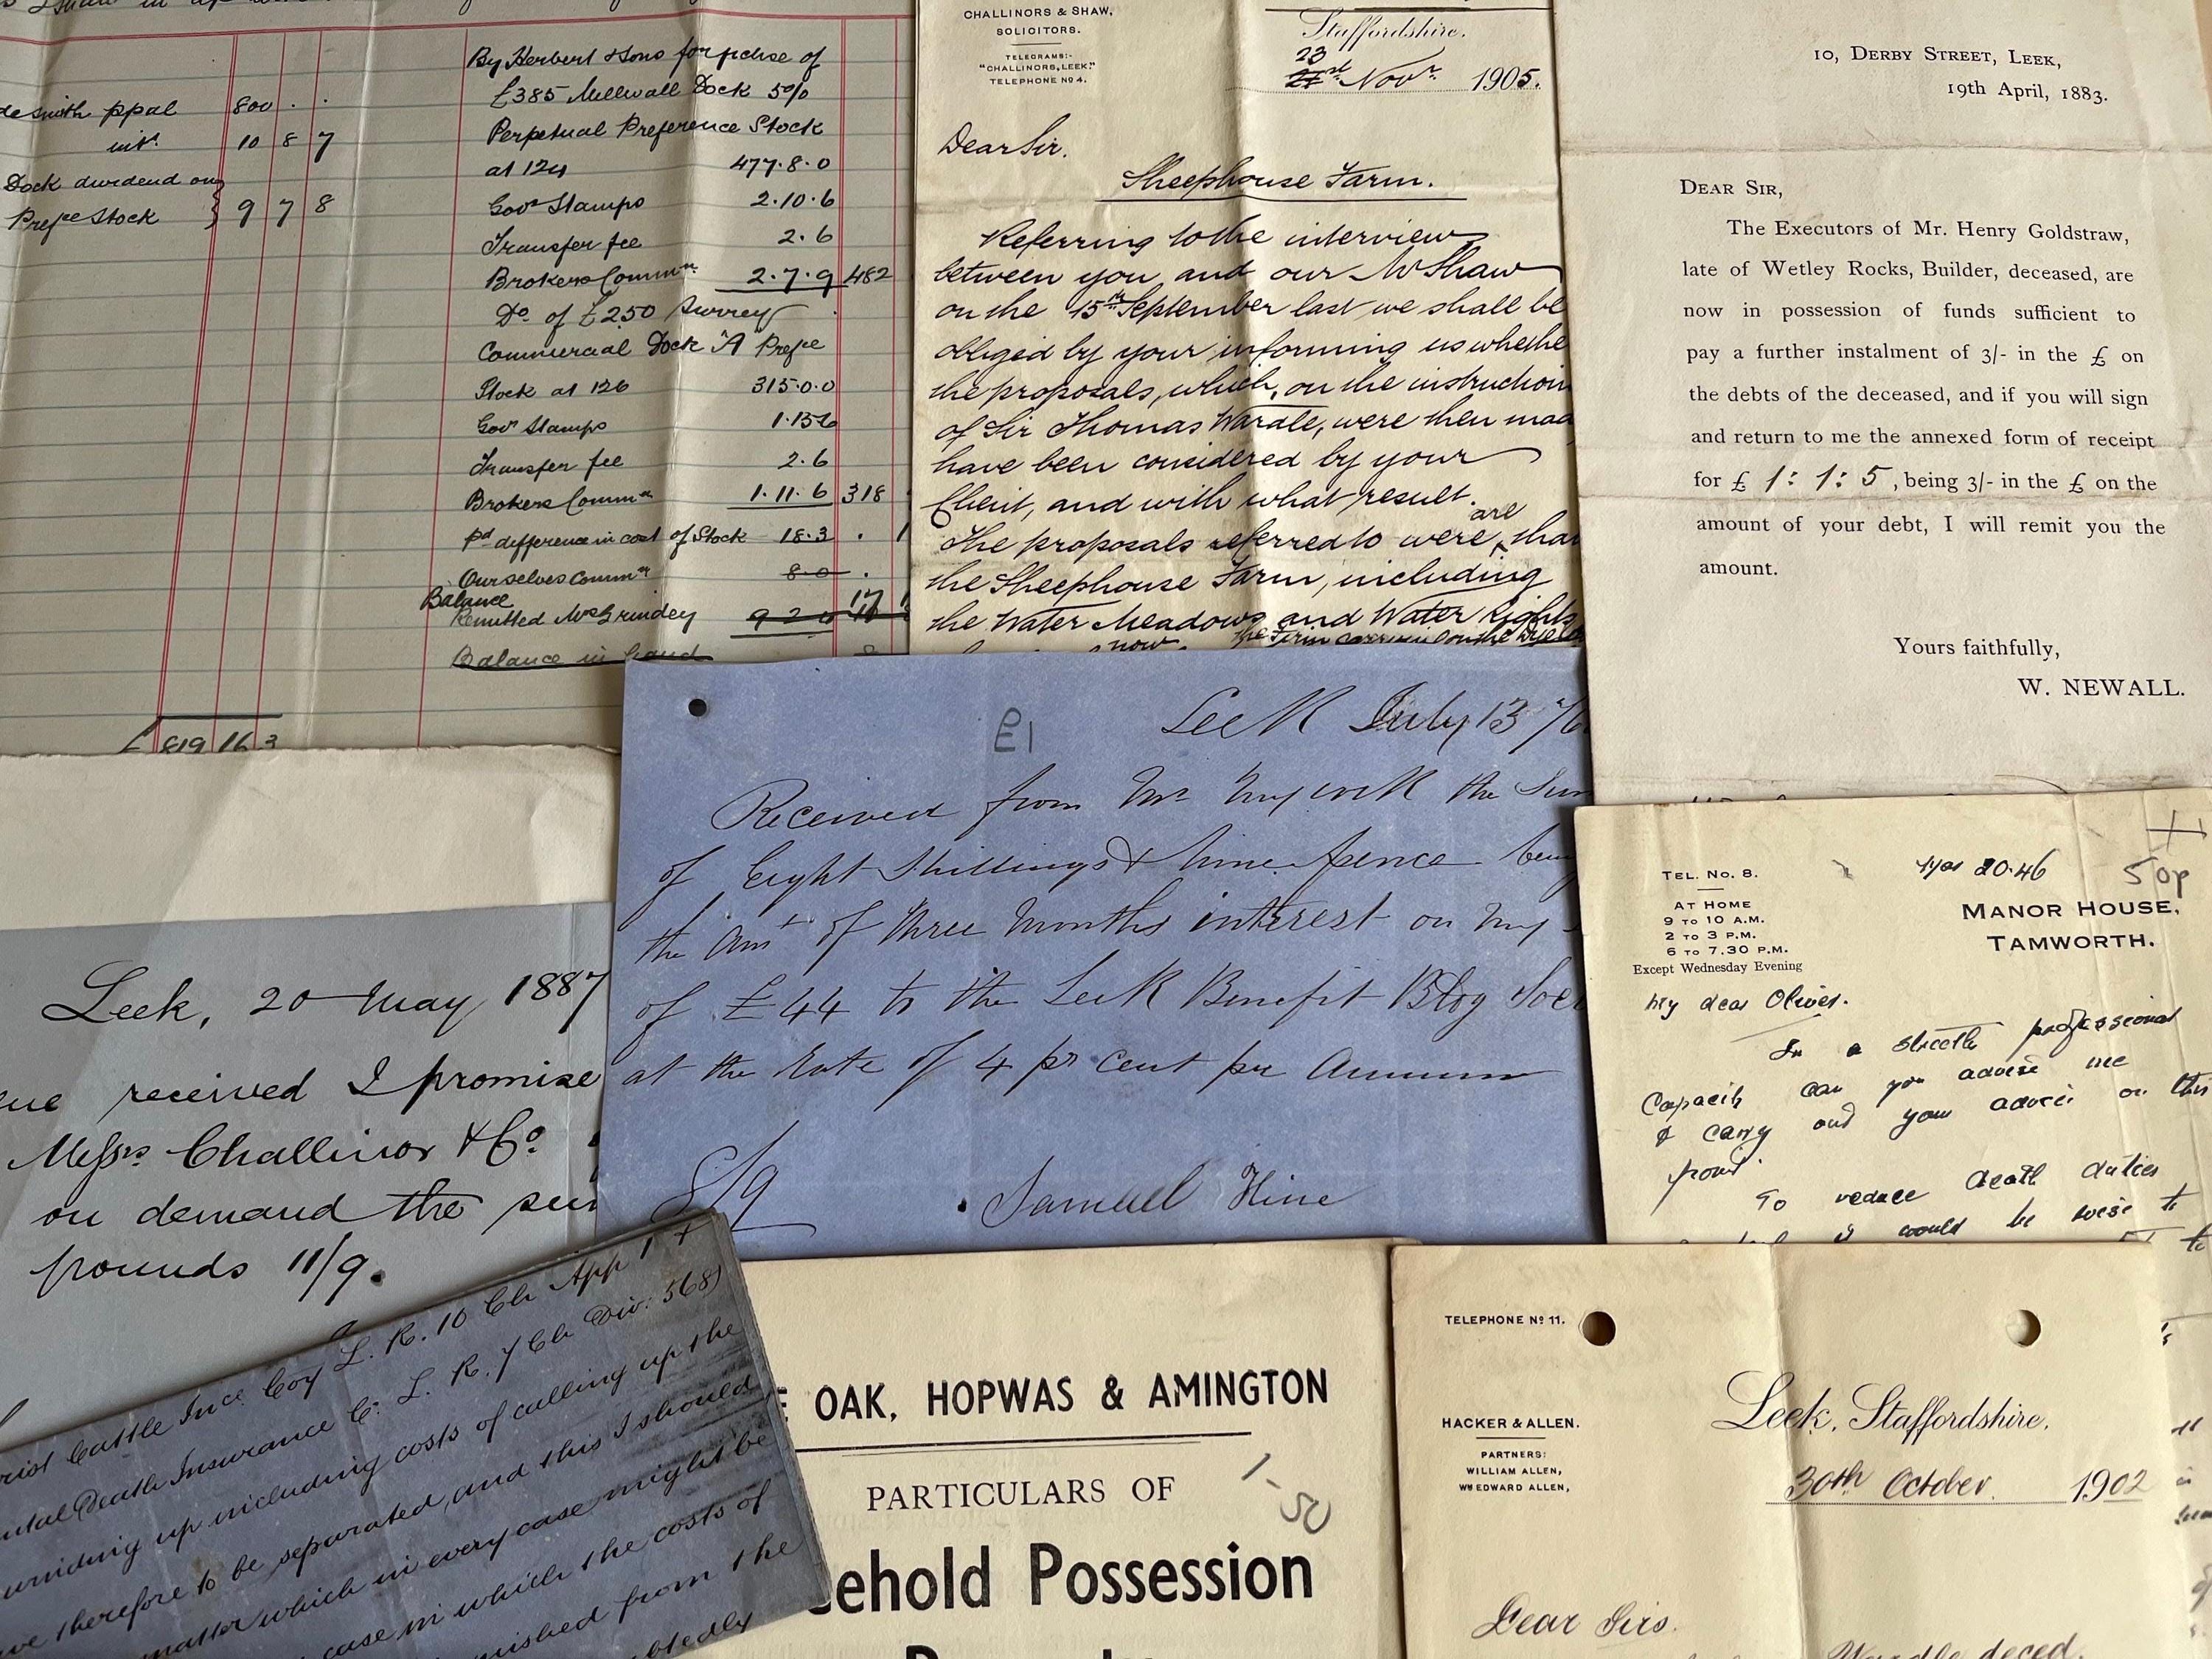 desmith ppal 800 . .
int. 10 8 7
Dock dividend on
Prefce Stock } 9 7 8
£ 819 16 3
By Herbert & Sons for pchse of
£385 Millwall Dock 5%
Perpetual Preference Stock
at 124 477.8.0
Govt Stamps 2.10.6
Transfer fee 2.6
Brokers Commn 2.7.9 482
Do of £250 Surrey
Commercial Dock "A" Prefce
Stock at 126 315.0.0
Govt Stamps 1.15.6
Transfer fee 2.6
Brokers Commn 1.11.6 318
pd difference in cost of Stock 18.3 . 1
Ourselves Commn 8.0 .
Balance 17 1
Remitted Mrs Grindey 9 2
Balance in hand
CHALLINORS & SHAW,
SOLICITORS.
TELEGRAMS:-
"CHALLINORS, LEEK."
TELEPHONE No 4.
Staffordshire.
23
21st Novr 1905.
Dear Sir.
Sheephouse Farm.
Referring to the interview
between you and our Mr Shaw
on the 15th September last we shall be
obliged by your informing us whethe
the proposals, which, on the instruction
of Sir Thomas Wardle, were then mad
have been considered by your
Client, and with what result.
are
The proposals referred to were, tha
the Sheephouse Farm, including
the Water Meadows and Water Rights
now the Firm carried on the Dye
10, DERBY STREET, LEEK,
19th April, 1883.
DEAR SIR,
The Executors of Mr. Henry Goldstraw,
late of Wetley Rocks, Builder, deceased, are
now in possession of funds sufficient to
pay a further instalment of 3/- in the £ on
the debts of the deceased, and if you will sign
and return to me the annexed form of receipt
for £ 1:1:5, being 3/- in the £ on the
amount of your debt, I will remit you the
amount.
Yours faithfully,
W. NEWALL.
£1
Leek July 13
Received from Mr the Sum
of Eight Shillings & Nine pence being
the Amt of Three Months interest on my
of £44 to the Leek Benefit Bldg Soci
at the Rate of 4 pr cent pr Annum
8/9
Samuel Hine
Leek, 20 May 1887
lue received I promise
Messrs Challinor & Co.
on demand the sum
pounds 11/9.
TEL. No. 8.
AT HOME
9 TO 10 A.M.
2 TO 3 P.M.
6 TO 7.30 P.M.
Except Wednesday Evening
20.46
50p
MANOR HOUSE,
TAMWORTH.
My dear Oliver.
In a strictly professional
Capacity can you advise me
& carry out your advice on this
point.
To reduce death duties
it would be wise to
rist Cattle Ince Coy L. R. 10 Ch App 1 +
ntal Death Insurance Co L. R. 7 Ch Div: 568)
winding up including costs of calling up the
ve therefore to be separated, and this I should
matter which in every case might be
case in which the costs of
nished from the
btedly
E OAK, HOPWAS & AMINGTON
PARTICULARS OF
1-50
ehold Possession
TELEPHONE No 11.
HACKER & ALLEN.
PARTNERS:
WILLIAM ALLEN,
WM EDWARD ALLEN,
Leek, Staffordshire,
30th October 1902
Dear Sirs.
Wardle deced.